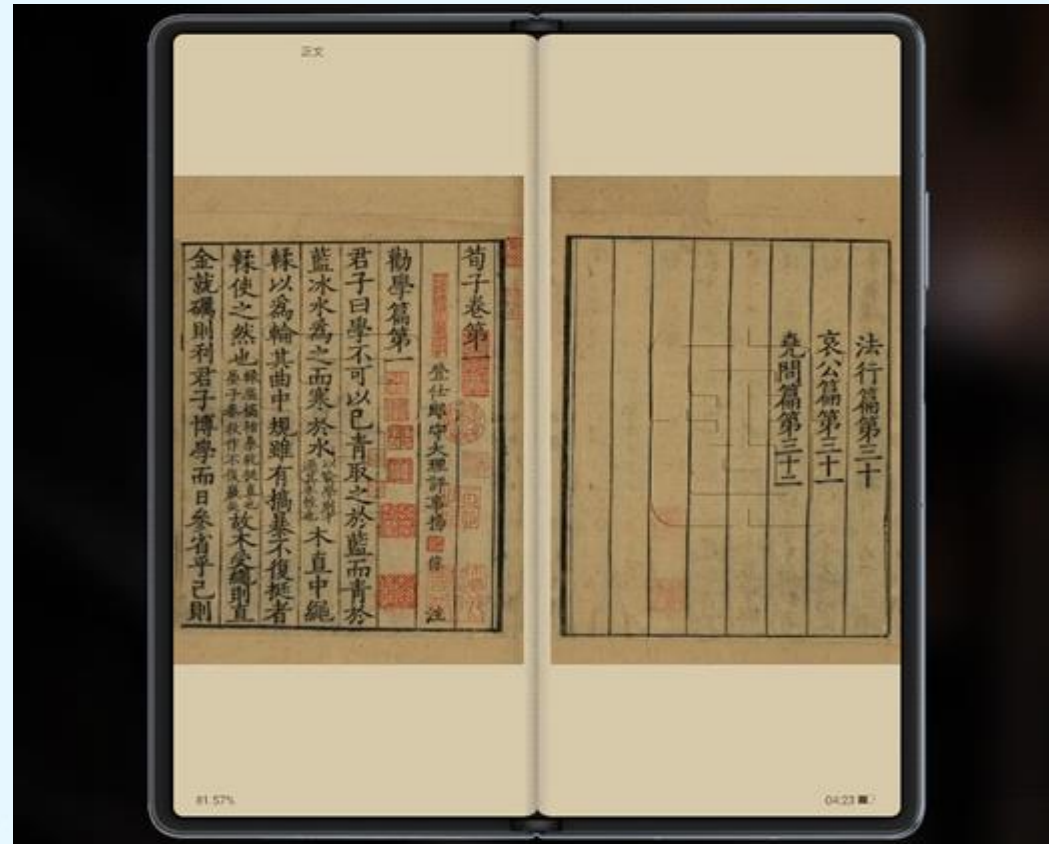 正文
法行篇第三十
哀公篇第三十一
堯問篇第三十二
荀子卷第一
登仕郎守大理評事楊倞注
勸學篇第一
君子曰學不可以已青取之於藍而青於
藍冰水爲之而寒於水木直中繩
輮以爲輪其曲中規雖有槁暴不復挺者
輮使之然也輮屈槁枯暴乾挺直也晏子春秋作不復贏矣故木受繩則直
金就礪則利君子博學而日參省乎己則
81.57%
04:23